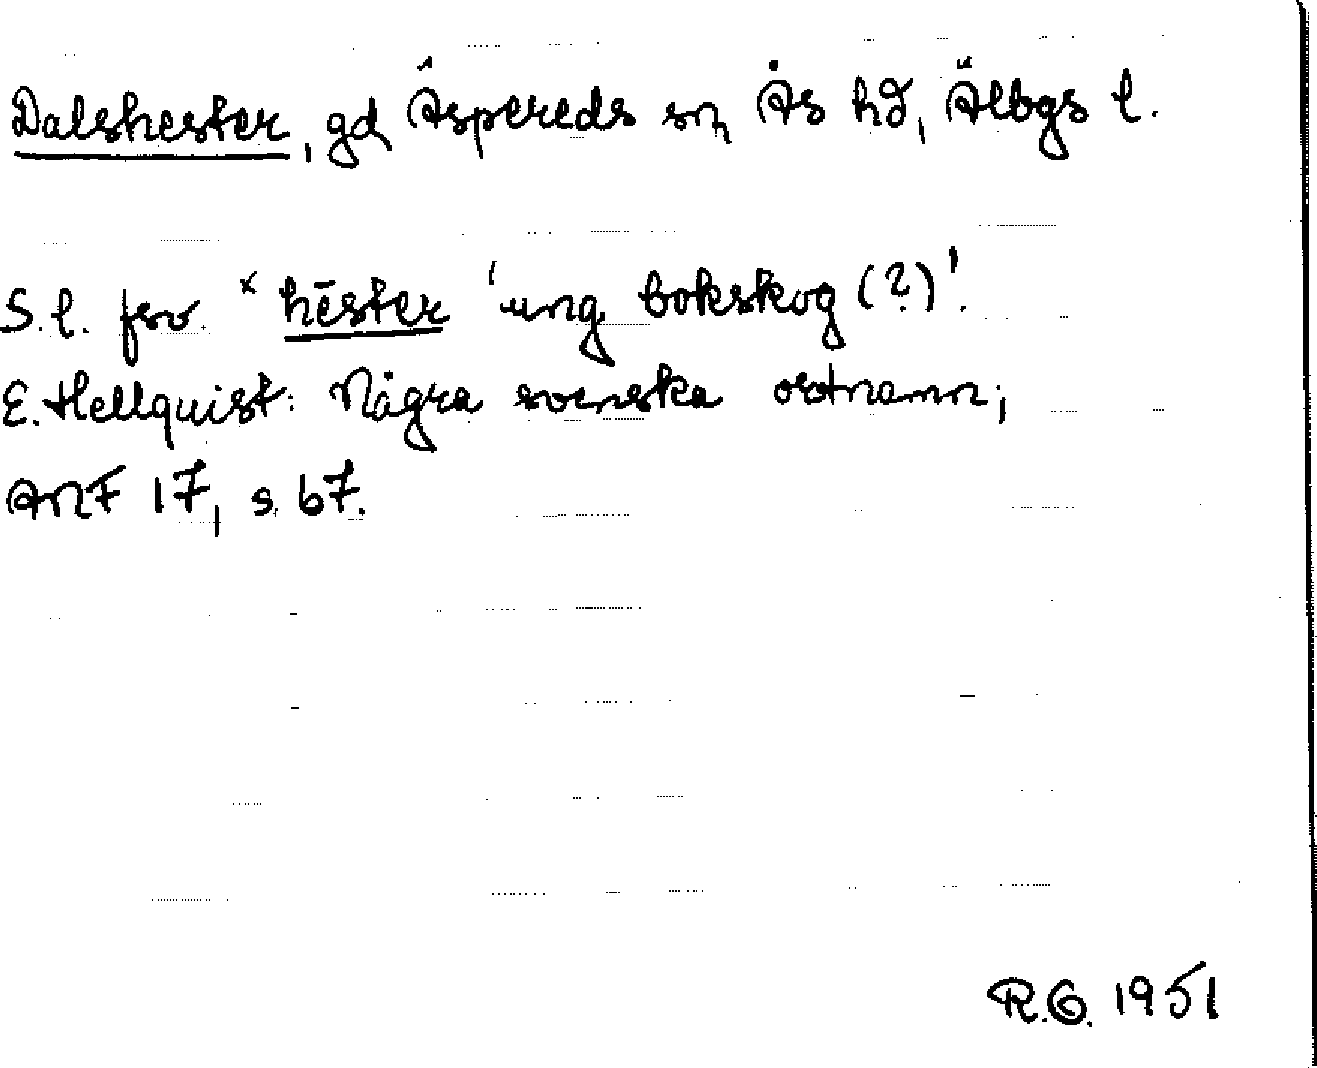 Dalshester, gd Äspereds sn Ås hd, Älvbgs l.
S. l. fsv. ˣhēster 'ung bokskog (?)'.
E. Hellquist: Några svenska ortnamn;
ANF 17, s. 67.
R.G. 1951